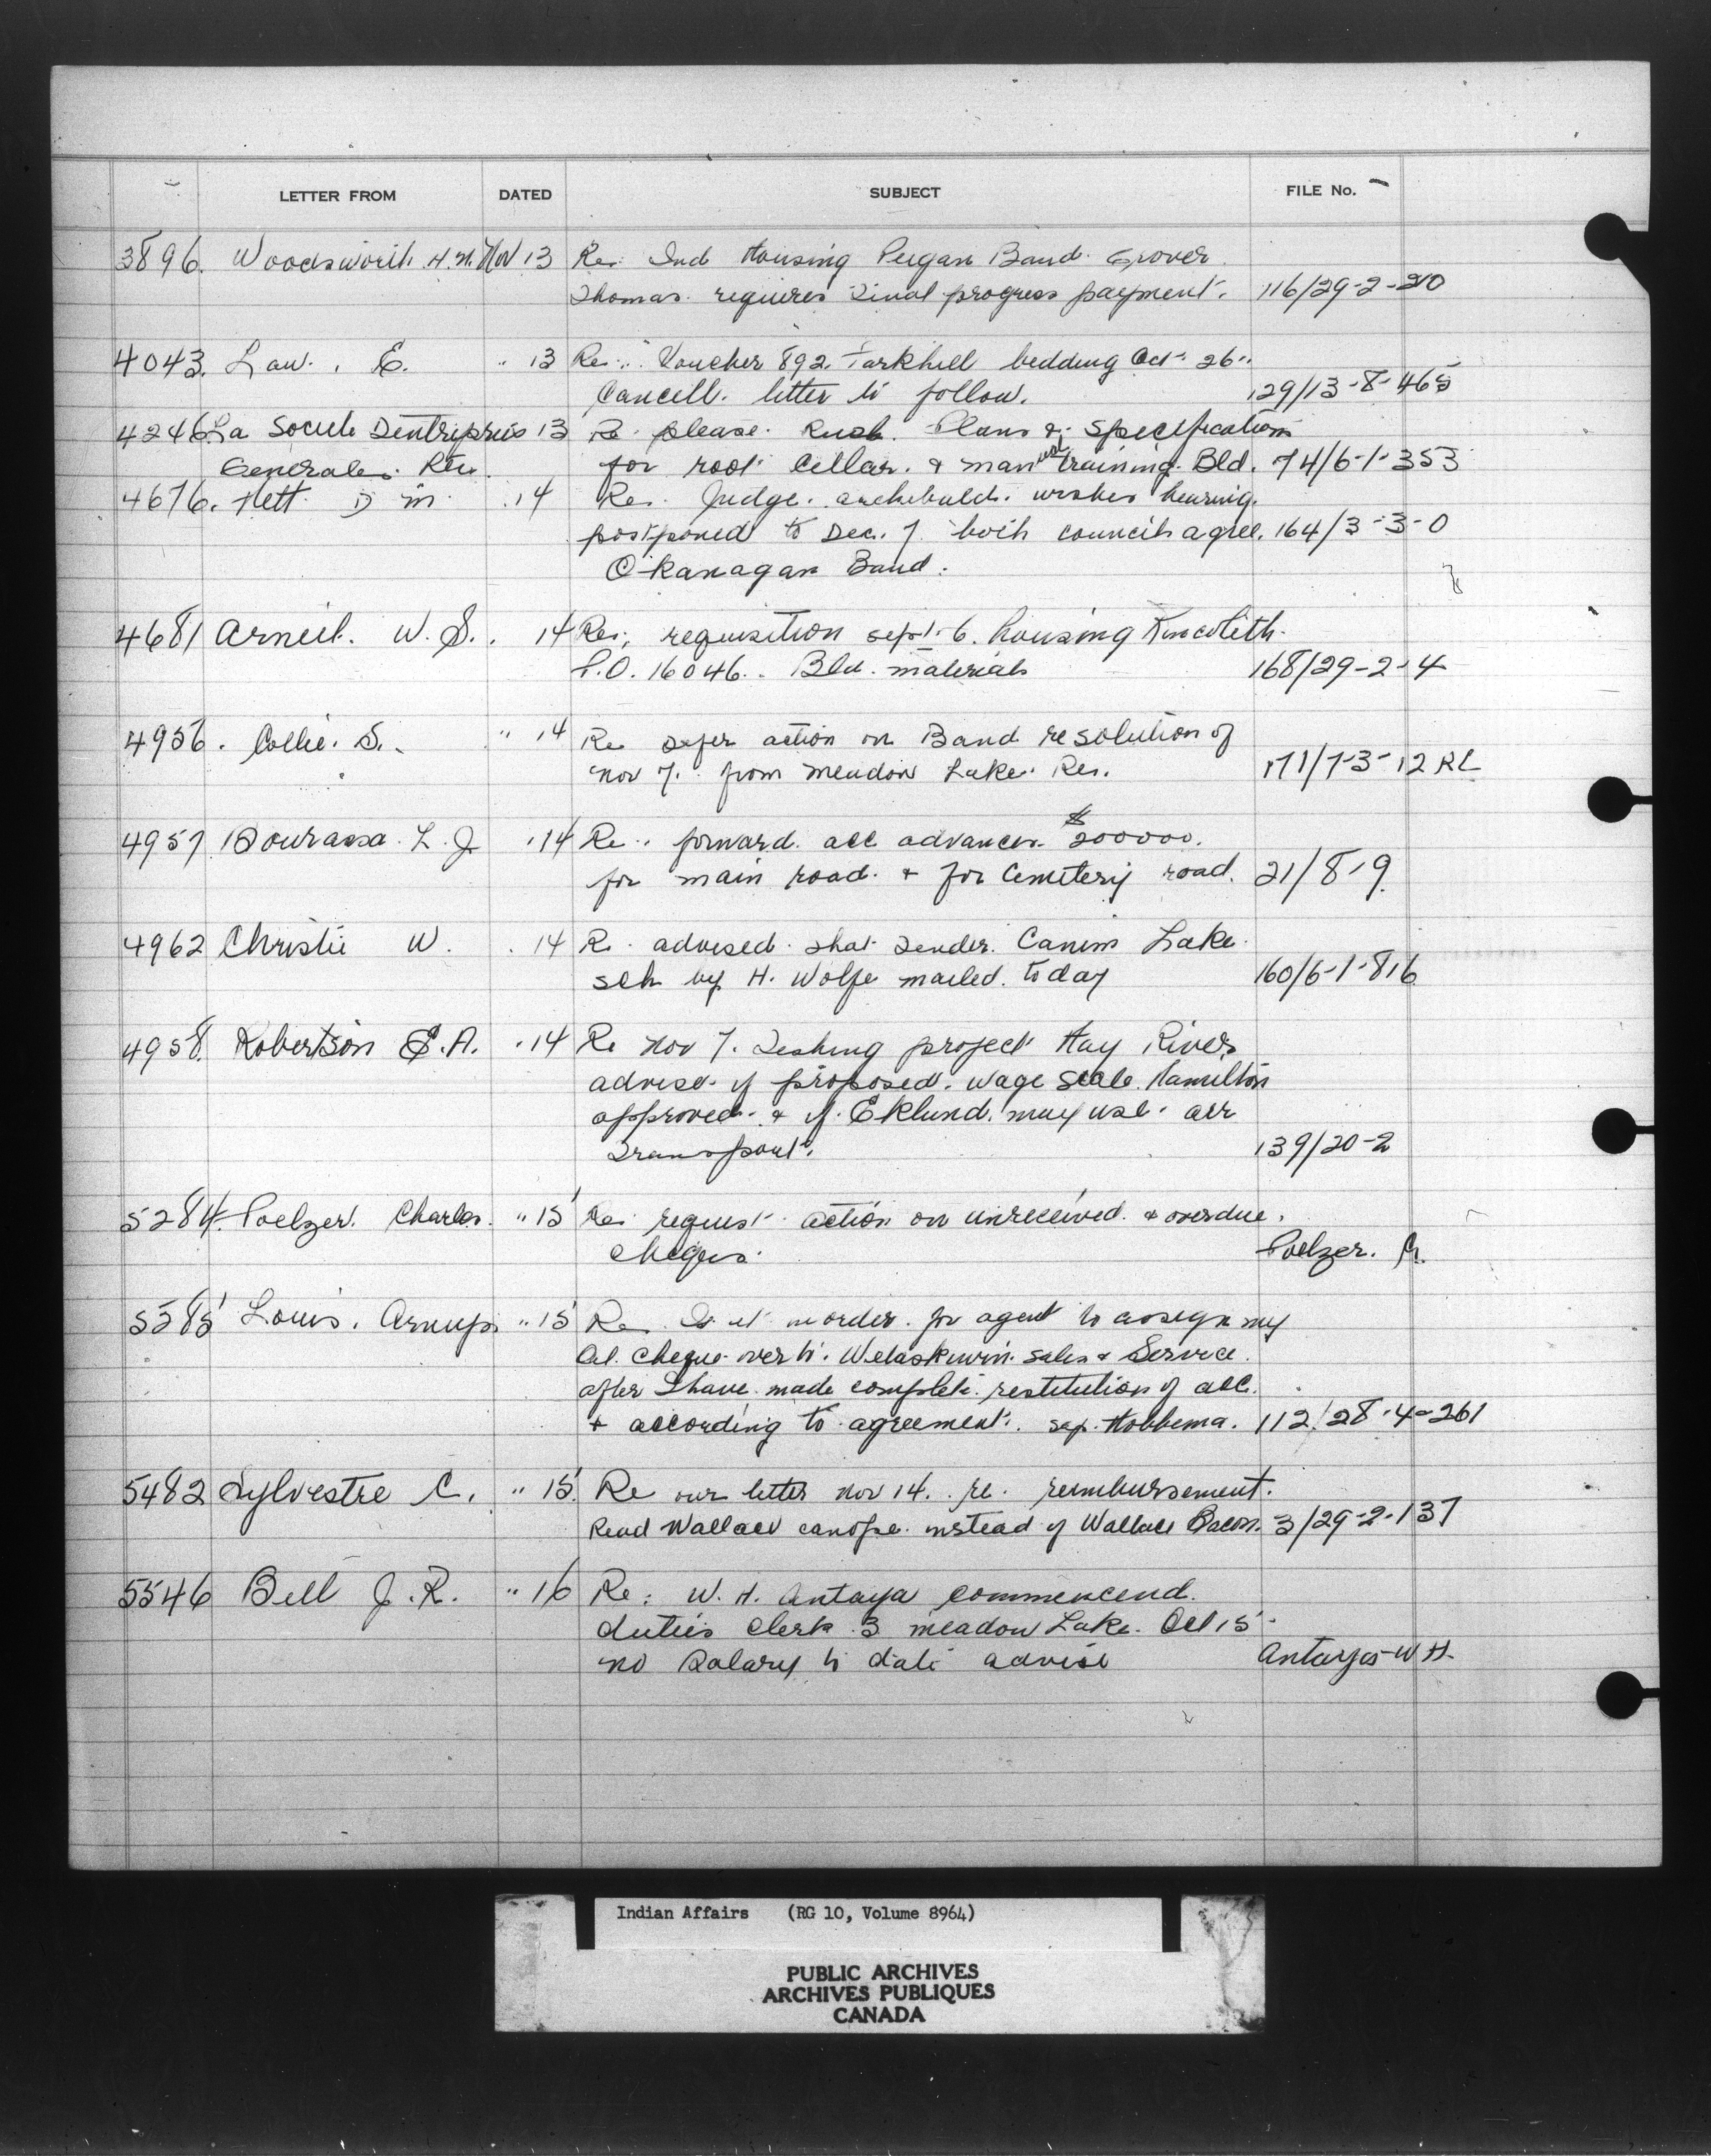 LETTER FROM DATED SUBJECT FILE No.
3896. Woodsworth H.N. Nov 13 Re: Ind Housing Peigan Band Grover
Thomas. requires Final progress payment. 116/29-2-210
4043. Law. E. " 13 Re: Voucher 892. Parkhill bedding Oct 26"
Cancell. letter to follow. 129/13-8-465
4246 La Societe Dentreprises 13 Re please Rush Plans & Specifications
Generales. for root cellar. & manual training Bld. 74/6-1-353
4676. D M. 14 Re. Judge. archibald. wishes hearing.
postponed to Dec. 7 both councils agree. 164/3-3-0
Okanagan Band.
4681 Arneil. W. S. 14 Re: requisition sept 6. housing Kincolith.
P.O. 16046. Bld. materials 168/29-2-4
4956. Collie. S. " 14 Re defer action on Band resolution of
Nov 7. from Meadow Lake Res. 171/7-3-12 RL
4957 Bourassa. L. J. 14 Re. forward. acc advances $200000.
for main road. & for Cemetery road. 21/8-9
4962 Christie W. 14 Re. advised that Tender. Canim Lake
sch by H. Wolfe mailed. today 160/6-1-816
4958. Robertson E.A. 14 Re Nov 7. Fishing project Hay River
advise if proposed. wage scale Hamilton
approved. & if. Eklund. may use air
Transport. 139/20-2
5284. Poelzer. Charles. " 15 Re: request action on unreceived. & overdue.
Cheques. Poelzer. C.
5385 Louis. " 15 Re. Is it in order. for agent to assign my
Oil. cheque over to. Wetaskiwin. Sales & Service.
after I have made complete restitution of acc.
& according to agreement. Hobbema. 112/28-4-261
5482 Sylvestre C. " 15. Re our letter Nov 14. re. reimbursement.
Read Wallace canope. instead of Wallace Bacon. 3/29-2-137
5546 Bell J. R. " 16 Re: W. H. Antaya commencend
duties Clerk 3 Meadow Lake. Oct 15
no Salary to date advise Antaya W H.
Indian Affairs (RG 10, Volume 8964)
PUBLIC ARCHIVES
ARCHIVES PUBLIQUES
CANADA